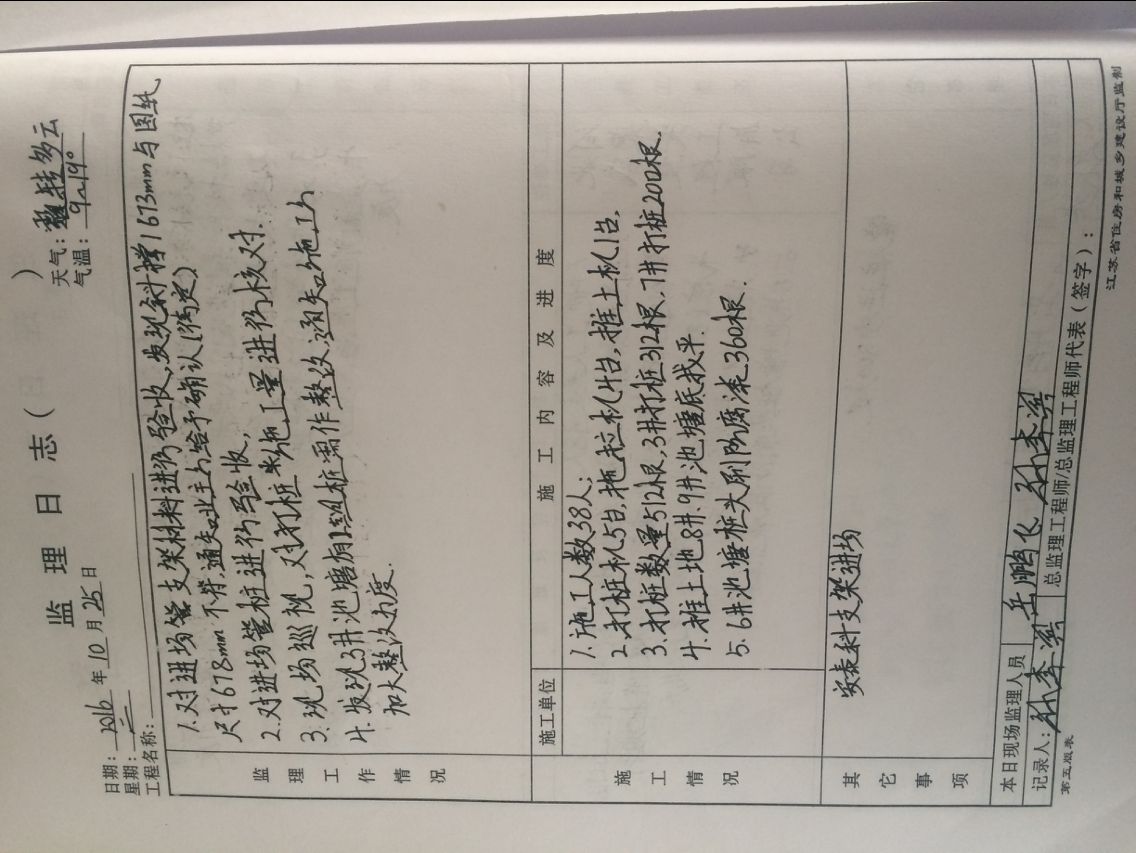 监理日志( )
日期: 2016 年 10 月 25 日
天气: 转多云
星期: 二
气温: 9~19°
工程名称:
监理工作情况
1.对进场管支架材料进行验收,发现斜撑1673mm与图纸
尺寸1678mm不符,通知业主方给予确认(待定)
2.对进场管桩进行验收,
3.现场巡视,对打桩类施工量进行核对.
4.发现3#池塘有 桩需作整改,通知施工方
加大整改力度.
施工单位
施工内容及进度
施工情况
1.施工人数38人;
2.打桩机5台,拖拉机4台,推土机1台.
3.打桩数量512根,3#打桩312根,7#打桩200根.
4.推土地8#.9#池塘底找平.
5.6#池塘桩头刷防腐漆360根.
其它事项
安泰科支架进场
本日现场监理人员
岳鹏飞 孙李
记录人: 孙李
总监理工程师/总监理工程师代表(签字):
第五版表
江苏省住房和城乡建设厅监制